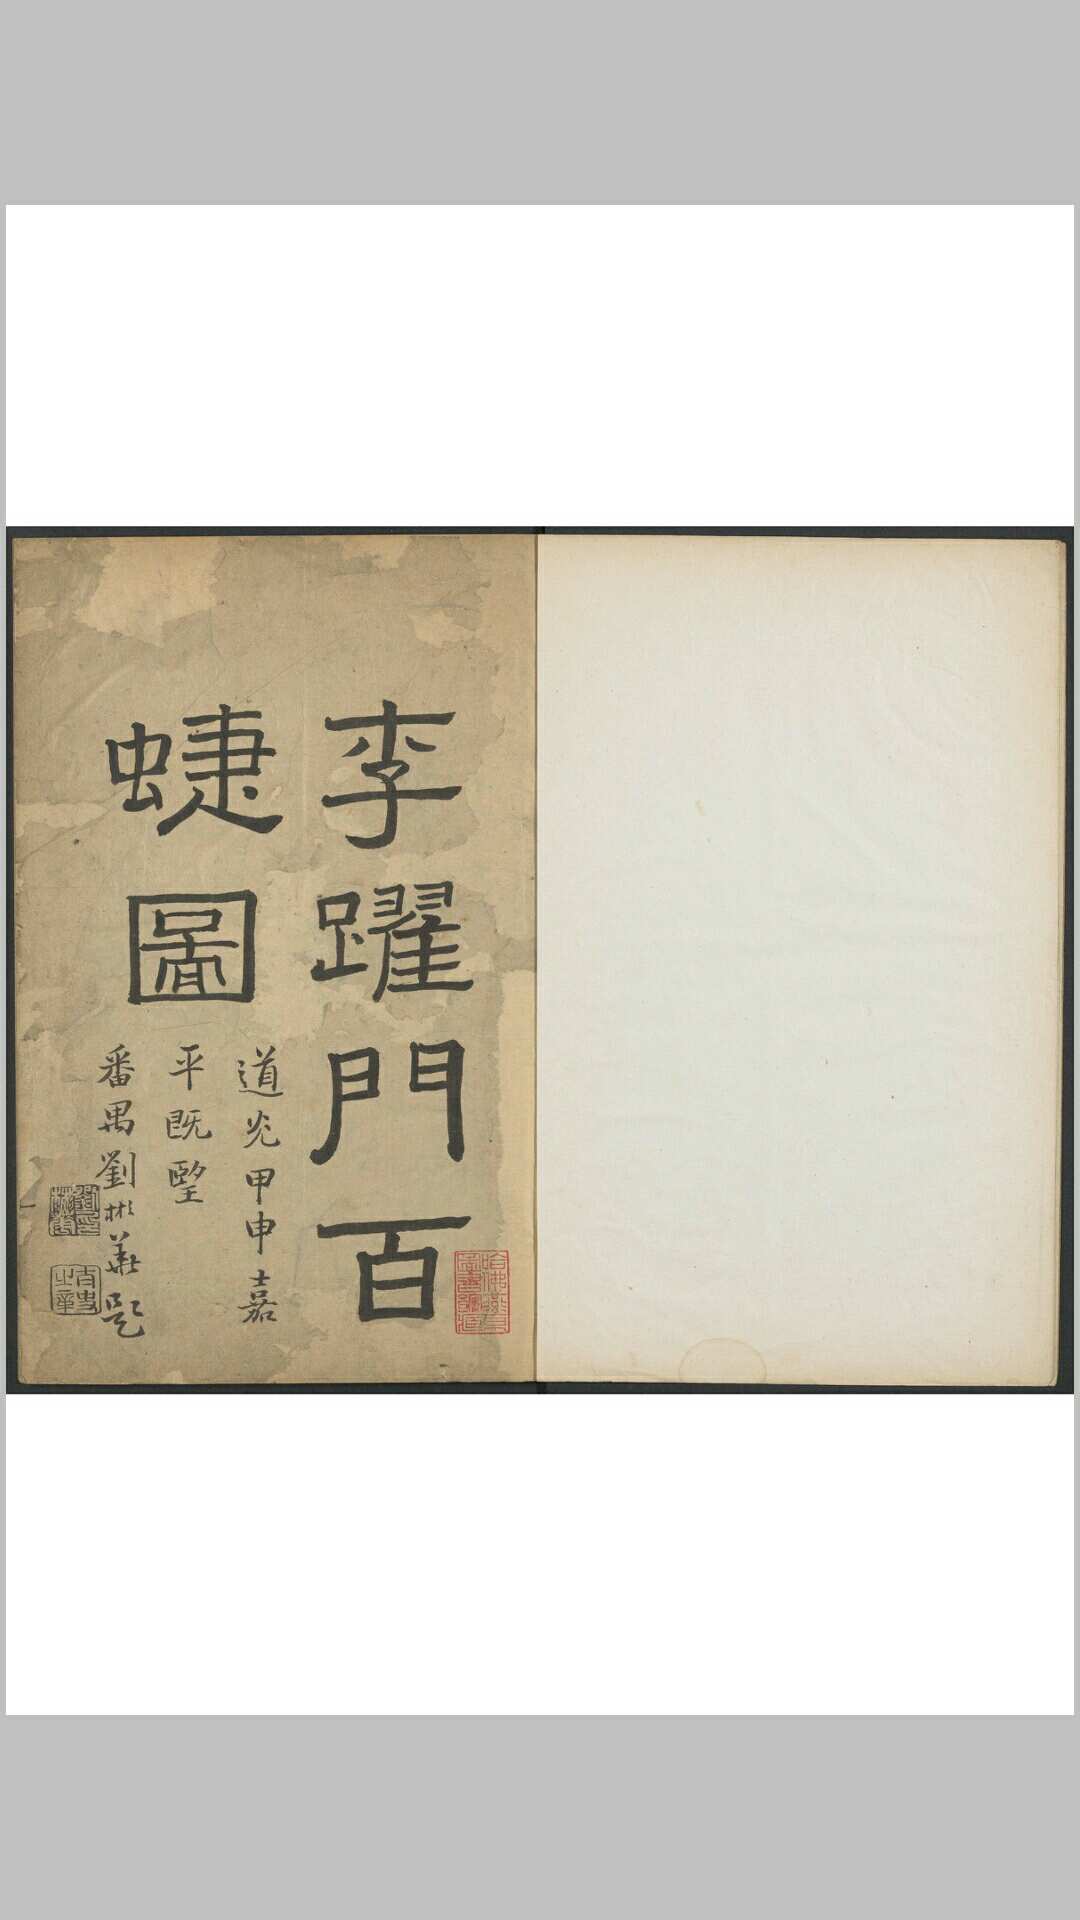 李躍門百
蜨圖
道光甲申嘉
平既朢
番禺劉彬華題